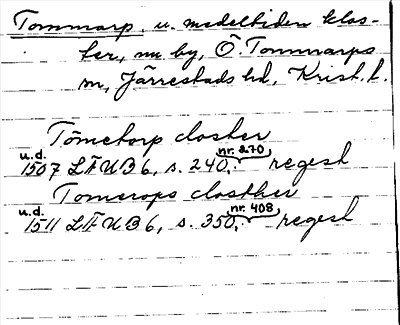 Tommarp, u. medeltiden klos-
ter, nu by, Ö. Tommarps
sn, Järrestads hd, Krist. l.
Tömetorp closter
u.d. nr. 270
1507 LÄUB 6, s. 240, regest
Tomerops closther
u.d. nr. 408
1511 LÄUB 6, s. 350, regest